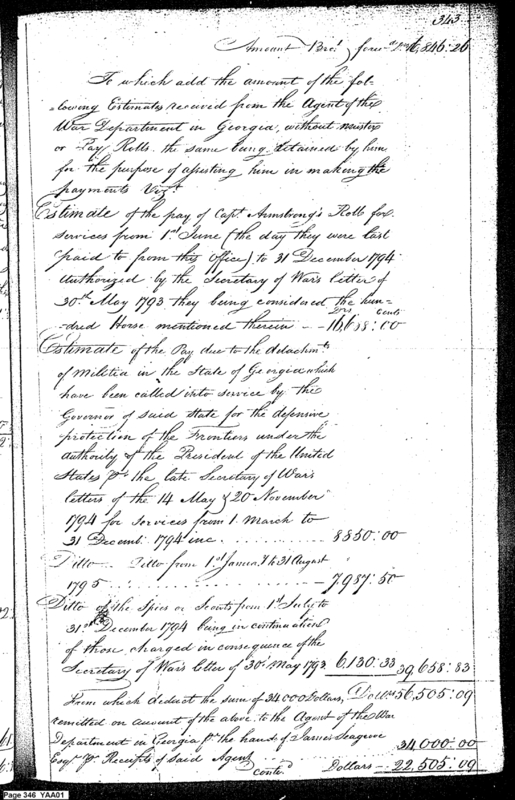 343
Amount Bro.t forw.d Drs 16,846:26
To which add the amount of the fol-
lowing Estimates received from the Agent of the
War Department in Georgia, without muster
or Pay Rolls the same being retained by him
for the purpose of assisting him in making the
payments Viz.t
Estimate of the pay of Capt. Armstrong's Rolls for
services from 1.st June (the day they were last
paid to from this office) to 31 December 1794
authorized by the Secretary of War's letter of
30.th May 1793 they being considered the hun-
Drs Cents
dred Horse mentioned therein
Estimate of the Pay due to the detachm.ts
of Militia in the State of Georgia which
have been called into service by the
Governor of said State for the defensive
protection of the Frontiers under the
authority of the President of the United
States p.r the late Secretary of War's
letters of the 14 May & 20 November
1794 for services from 1. March to
31 Decemb. 1794 inc. 8850:00
Ditto Ditto from 1.st Januar.y to 31 August
1795 7,987:50
Ditto of the Spies or Scouts from 1.st July to
31.st December 1794 being in continuation
of those charged in consequence of the
Secretary of War's letter of 30.th May 1793 6,130:33 39,658:83
From which deduct the sum of 34000 Dollars, Dollars 56,505:09
remitted on account of the above to the Agent of the War
Department in Georgia p.r the hands of James Seagrove
Esq.r p.r Receipts of said Agent 34000:00
cont.d Dollars 22,505:09
Page 346 YAA01